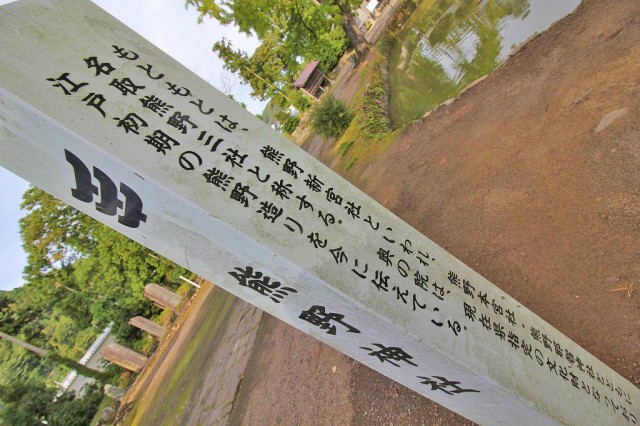 熊野神社
もともとは、熊野新宮社といわれ、熊野本宮社・熊野那智神社とともに
名取熊野三社と称する。奥の院は、現在県指定の文化財となっており
江戸初期の熊野造りを今に伝えている。